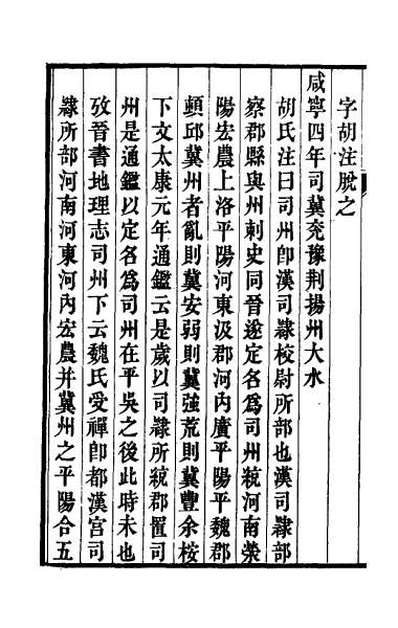 字胡注脫之
咸寧四年司冀兖豫荆揚州大水
胡氏注曰司州卽漢司隸校尉所部也漢司隸部
察郡縣與州刺史同晉遂定名爲司州統河南滎
陽宏農上洛平陽河東汲郡河內廣平陽平魏郡
頓邱冀州者亂則冀安弱則冀強荒則冀豐余桉
下文太康元年通鑑云是歲以司隸所統郡置司
州是通鑑以定名爲司州在平吳之後此時未也
攷晉書地理志司州下云魏氏受禪卽都漢宮司
隸所部河南河東河內宏農并冀州之平陽合五